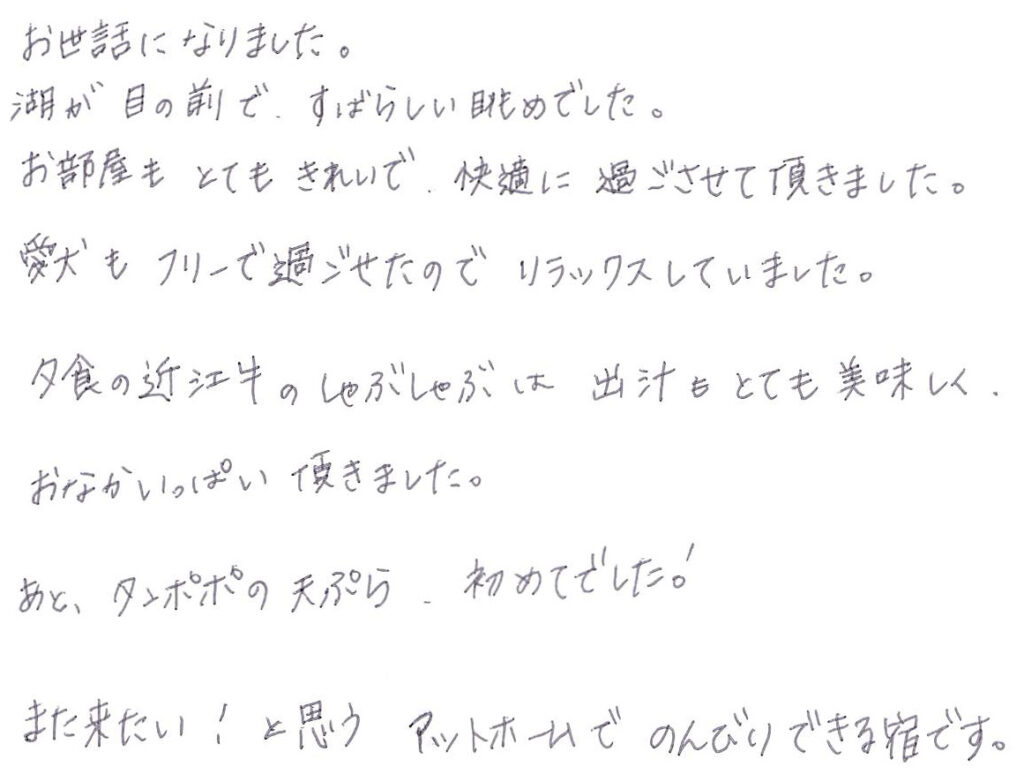 お世話になりました。
湖が目の前で、すばらしい眺めでした。
お部屋もとてもきれいで、快適に過ごさせて頂きました。
愛犬もフリーで過ごせたのでリラックスしていました。
夕食の近江牛のしゃぶしゃぶは出汁もとても美味しく、
おなかいっぱい頂きました。
あと、タンポポの天ぷら、初めてでした!
また来たい!と思うアットホームでのんびりできる宿です。